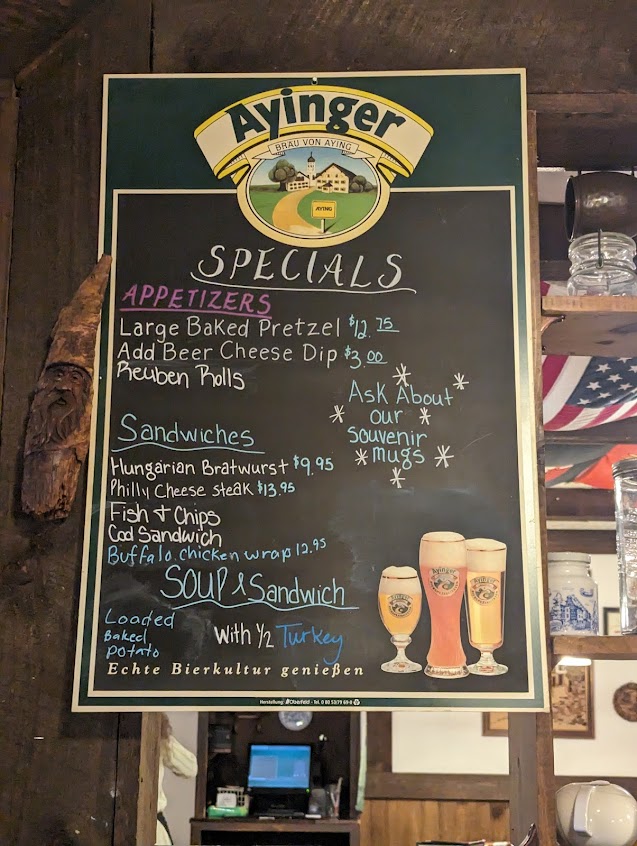 Ayinger
BRÄU VON AYING
AYING
SPECIALS
APPETIZERS
Large Baked Pretzel $12.75
Add Beer Cheese Dip $3.00
Reuben Rolls
Ask About
our
souvenir
mugs
Sandwiches
Hungarian Bratwurst $9.95
Philly Cheese steak $13.95
Fish & Chips
Cod Sandwich
Buffalo chicken wrap 12.95
SOUP & Sandwich
Loaded
Baked
Potato
With 1/2 Turkey
Ayinger
Echte Bierkultur genießen